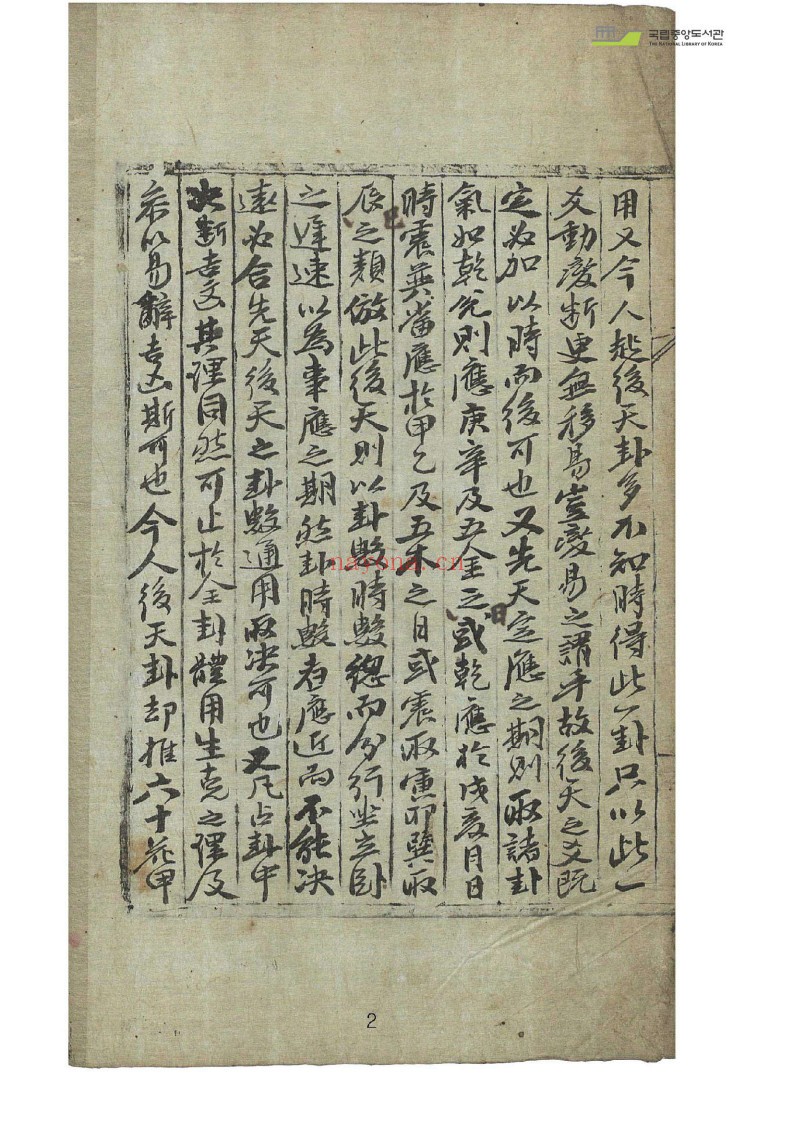 국립중앙도서관
THE NATIONAL LIBRARY OF KOREA
用又今人起後天卦多不知時得此一卦只以此一
爻動變断更無移易豈變易之謂乎故後天之爻既
定必加以時而後可也又先天定應之期則取諸卦
氣如乾兌則應庚辛及五金之日或乾應於戌亥月日
時震巽當應於甲乙及五木之日或震取寅卯巽取
辰巳之類倣此後天則以卦數時數總而分行坐立卧
之遲速以為事應之期然卦時數者應近而不能决
遠必合先天後天之卦數通用取决可也又凡占卦中
决斷吉凶其理同然可止於全卦體用生克之理及
叅以易辭吉凶斯可也今人後天卦却推六十花甲
nayona.cn
2